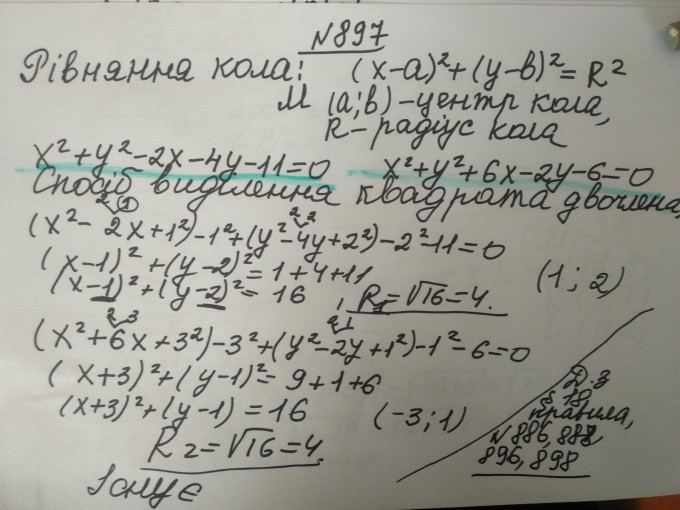 №897
Рівняння кола: (x-a)²+(y-b)²=R²
M (a;b)-центр кола,
R-радіус кола
x²+y²-2x-4y-11=0 x²+y²+6x-2y-6=0
Спосіб виділення квадрата двочлена,
(x²-2x+1²)-1²+(y²-4y+2²)-2²-11=0
(x-1)²+(y-2)²=1+4+11
(x-1)²+(y-2)²=16 (1;2)
R₁=√16=4.
(x²+6x+3²)-3²+(y²-2y+1²)-1²-6=0
(x+3)²+(y-1)²=9+1+6
(x+3)²+(y-1)=16 (-3;1)
R₂=√16=4.
Існує
Д.з
§ 18,
правила,
№886, 888,
896, 898